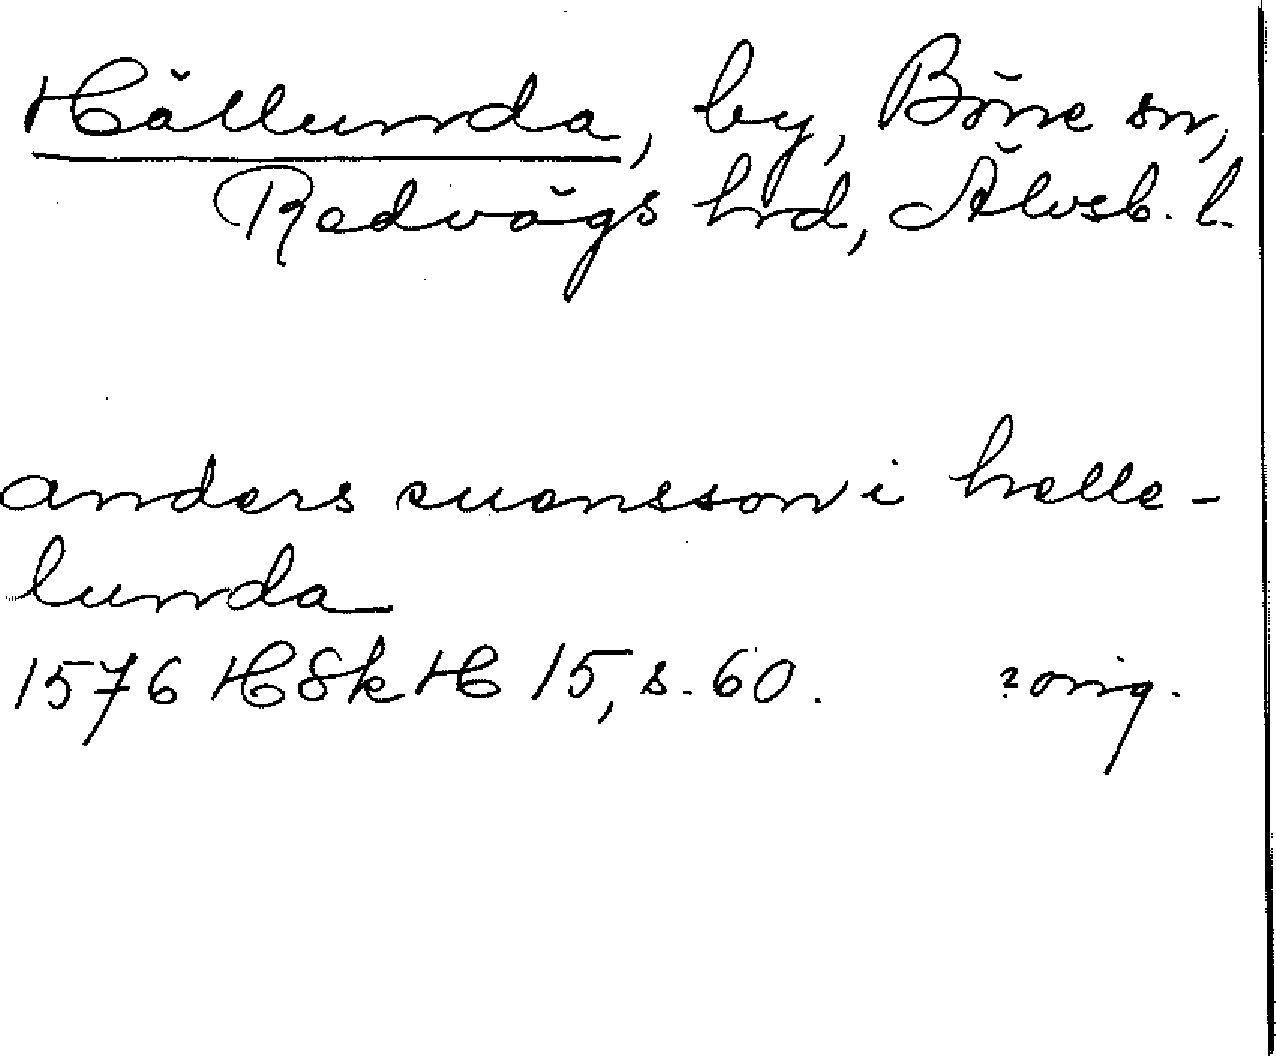 Hällunda, by, Böne sn,
Redvägs hrd, Älvsb. l.
anders suensson i helle-
lunda
1576 HSkH 15, s. 60. orig.